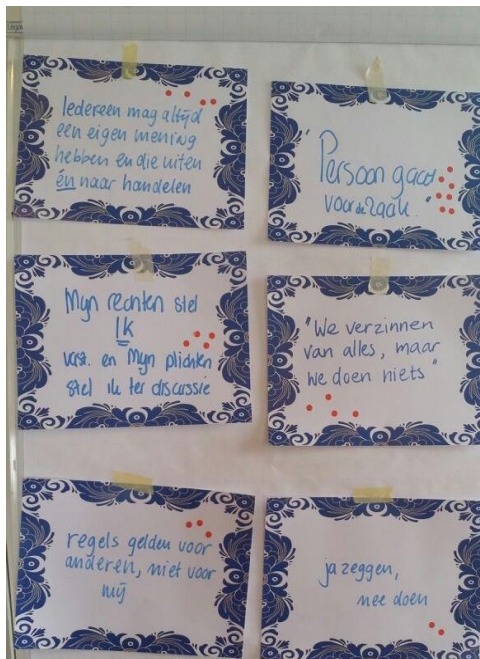 Iedereen mag altijd
een eigen mening
hebben en die uiten
én naar handelen
"Persoon gaat
voor de zaak."
Mijn rechten stel
Ik
vast. en Mijn plichten
stel ik ter discussie
"We verzinnen
van alles, maar
we doen niets"
regels gelden voor
anderen, niet voor
mij
ja zeggen,
nee doen